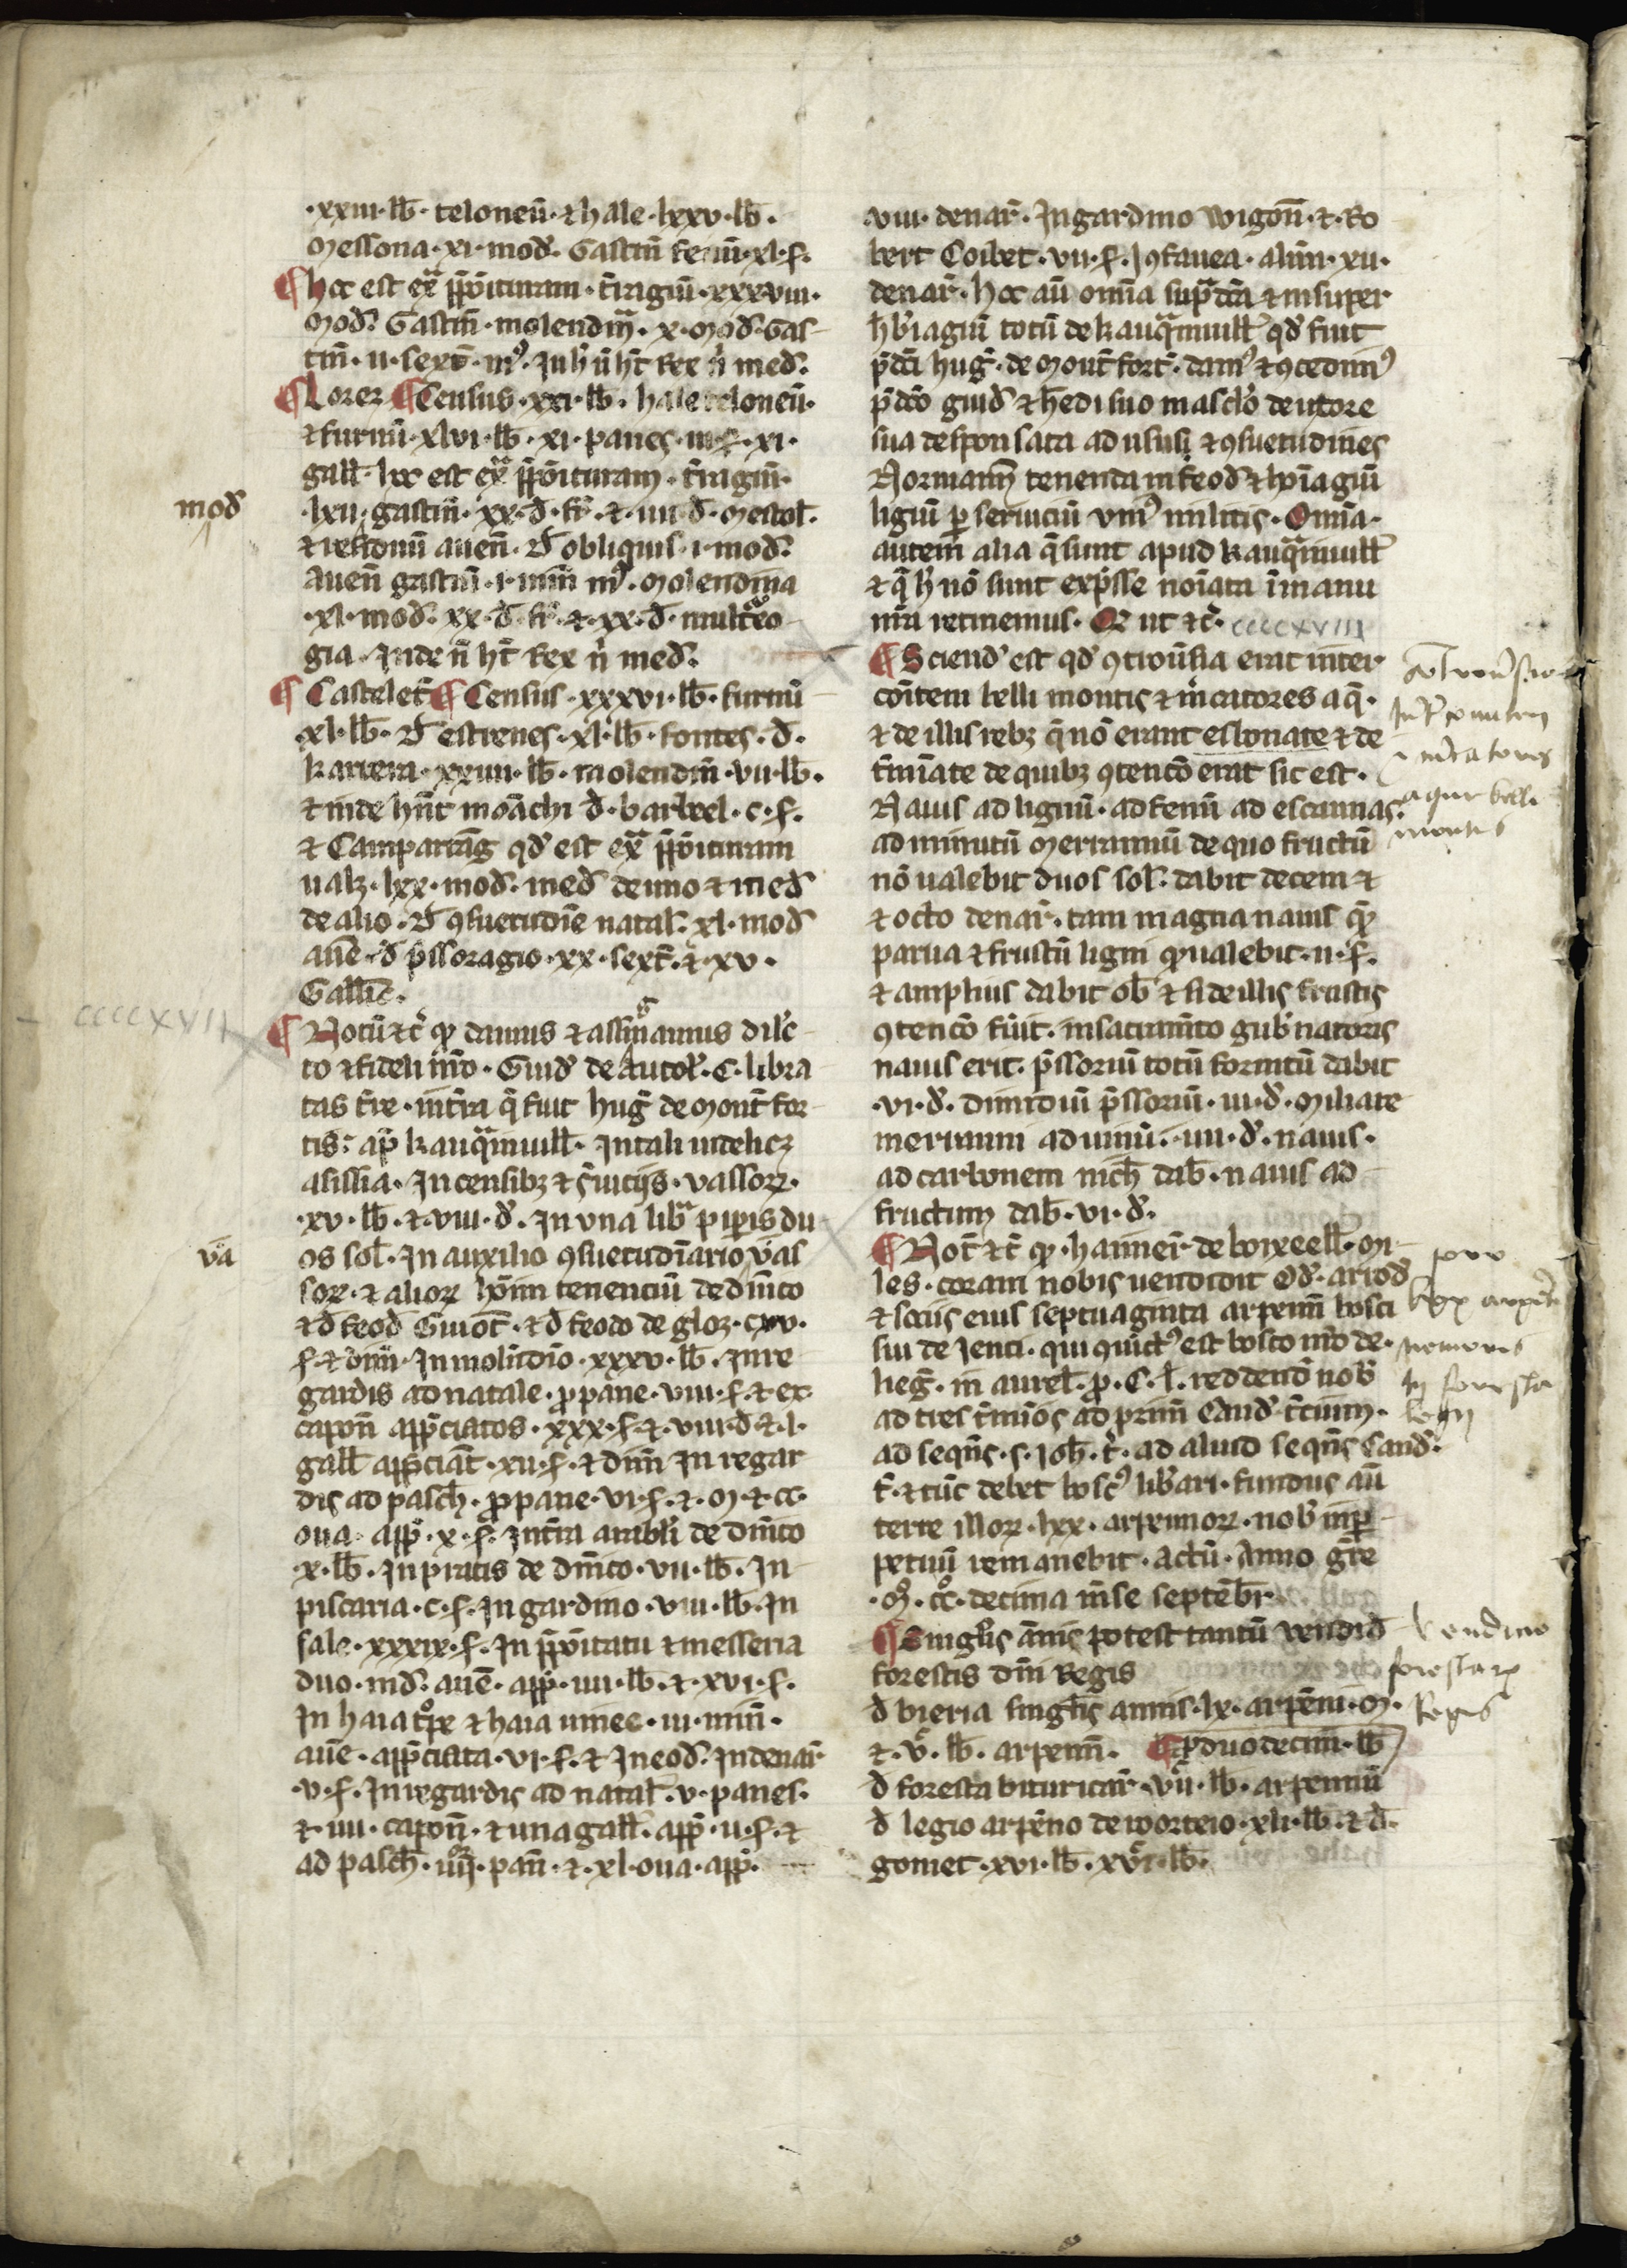 ·xxiii·lb̄· teloneū· ⁊ hale·lxxv·lb̄·
Messona·xi·mod̄· Gastiñ fenū·xl·s·
¶ hoc est ex̄ p̄p̄ōituram· t̄ragiū·xxxviii·
mod̄· Gastiñ·molendiñ·x·mod̄·Gas-
tiñ·ii·sext̄·
¶ Lorez ¶ Census·xxi·lb̄· hale teloneū·
⁊ furnū·xlvi·lb̄·xi·panes·iii·s·xi·
gall̄· hoc est ex̄ p̄p̄ōituram· t̄ragiū·
mod̄
·lxii· gastiñ·xx·d̄· ⁊·iiii·d̄·
auen̄· D̄ obliquis·i·mod̄·
Auen̄ gastiñ·i·miñ m̄·Molendina
·xl·mod̄·xx·d̄· ⁊·xx·d̄· multreo-
gia· Inde n̄ ht̄ Rex n̄ med̄·
¶ Castelet̄ ¶ Census·xxxvi·lb̄·furnū
·xl·lb̄·D̄ estrenes·xl·lb̄·fontes·d̄·
karrera·xxiiii·lb̄·molendiñ·vii·lb̄·
⁊ inde hn̄t moāchi d̄·barbeel·c·s·
⁊ Campartāg qd̄ est ex̄ p̄p̄ōituram
ualz·lxx·mod̄·med̄ de uno ⁊ med̄
de alio·D̄ ꝯsuetudīe natal̄·xl·mod̄
auē·d̄ p̄ssoragio·xx·sext̄·⁊·xv·
Gallīc·
ccccxvii
¶ Notū ⁊c̄ qͦ damus ⁊ assignamus dilc̄-
to ⁊ fideli nr̄o·Guid̄ de Autoł·C·libra
tas t̄re·in t̄ra q̄ fuit hug̃ de Mont̄ for-
tis· ap̄ kauqͣinuill̄·In tali uidelicz
asissia·In censibz ⁊ s̄uitijs·vassorꝝ·
·xv·lb̄·⁊·viii·d̄·In vna libͣ piꝑis du
vͣa
os sol̄·In auxilio ꝯsuetudīario vͣas
sorꝝ·⁊ aliorꝝ hōīm tenenciū de dn̄ico
⁊ d̄ feod̄ Guiot̄·⁊ d̄ feodo de gloz·cxv·
s·⁊ dim̄·In molīdīo·xxxv·lb̄·In re
gardis ad natale·ꝓ pane·viii·s·⁊ ex
capon̄ app̄ciatos·xxx·s·⁊·viii·d̄ ⁊·l·
gall̄ app̄ciāt·xii·s·⁊ dim̄ In regar
dis ad pasch̄·ꝓ pane·vi·s·⁊·M·⁊·cc·
oua·app̄·x·s·In t̄ra arabli de dn̄ico
·x·lb̄·In pratis de dn̄ico·vii·lb̄·In
piscaria·c·s·In gardino·viii·lb̄·In
sale·xxxix·s·In p̄p̄ōitatu ⁊ messeria
duo·md̄·auē·app̄·iiii·lb̄·⁊·xvi·s·
In haia ⁊ haia uinee·iii·miñ·
auē·app̄ciata·vi·s·⁊ In eod̄·In denar̄
·v·s·In regardis ad natal̄·v·panes·
⁊·iiii·capon̄·⁊ una gall̄·app̄·ii·s·⁊
ad pasch̄·iiii·pan̄·⁊·xl·oua·app̄·
viii·denar̄·In gardino Wigoñ·⁊·Ro
bert Corbet·vii·s·Iꝯ fauea·alim̄·xii·
denar̄·hoc aū omīa sup̄dcā ⁊ insuper
hb̄iagiū totū de kauqͣinuill̄ qd̄ fuit
p̄dc̄i hug̃·de Mont̄fort̄·damꝰ ⁊ ꝯcedimꝰ
p̄dc̄o guid̄ ⁊ hedi suo masclo de uxore
sua desponsata ad usus ⁊ ꝯsuetudines
Normann̄ tenenda in feod̄ ⁊ hōiagiū
ligiū ꝑ seruiciū vniꝰ militis·Omīa·
autem alia q̄ sunt apud kauqͣinuill̄
⁊ q̄ h̄ nō sunt exp̄sse noīata ī manu
nr̄a retinemus·Q̄ ut ⁊c̄· ccccxviii
¶ Sciend̄ est qd̄ ꝯtrou̓sia erat inter
comitem belli montis ⁊ m̓catores aq̄·
⁊ de illis rebz q̄ nō erant esbonate ⁊ de
t̄minate de quibz ꝯtencō erat sic est·
Nauis ad lignū·ad fenū ad escannas·
ad minutū Merrannū de quo fructū
nō ualebit duos sol̄·dabit decem ⁊
⁊ octo denar̄·tam magna nauis qͣ
parua ⁊ frustū ligni qͦ ualebit·ii·s·
⁊ amplius dabit ob̄ ⁊ si de illis frustis
ꝯtencō fūit·in sacramto gub̓natoris
nauis erit·p̄ssoriū totū fornitū dabit
·vi·d̄·dimidiū p̄ssoriū·iii·d̄·Miliare
merinnni ad uinū·iiii·d̄·nauis·
ad carbonem nich̄ dab̄·nauis ad
fructum dab̄·vi·d̄·
¶ Not̄ ⁊c̄ qͦ·hamer̄ de boixeell̄·Mi-
les·coram nobis uendidit Od̄·ariod̄
⁊ sociis eius septuaginta arpenn̄ bosci
sui de Ienci·qui ꝯiūctꝰ est bosco nr̄o de·
heg̃·in aurel̄·ꝓ·C·l·reddend̄ nob̄
ad tres t̄minos ad primū Cand̄ t̄cium·
ad seqn̄s·s·Ioh̄·t̄·ad aliud seqn̄s Cand̄·
t̄·⁊ tūc debet boscꝰ libari·fundus aū
terre illorꝝ·lxx·arpennorꝝ·nob̄ inꝑ-
petuū remanebit·Actū·Anno gr̄e
·Mͦ·ccͦ·decimo m̄se septēbr̄
¶ Singl̄is ānis potest tantū vendid̄
forestis dn̄i Regis
d̄ bieria singl̄is annis·lx·arpēni·M·
⁊·v̄·lb̄·arpenn̄· ¶ ꝓ duodecim·lb̄
d̄ foresta bituricar̄·vii·lb̄·arpennū
d̄ legio arpēno de worteio·xli·lb̄·⁊ d̄·
gomet·xvi·lb̄·xvi·lb̄·
comitem
mercatores
aque belli
montis
pro
lxx arpen̄
nemoris
in foresta
legii
forestarꝝ
Regis